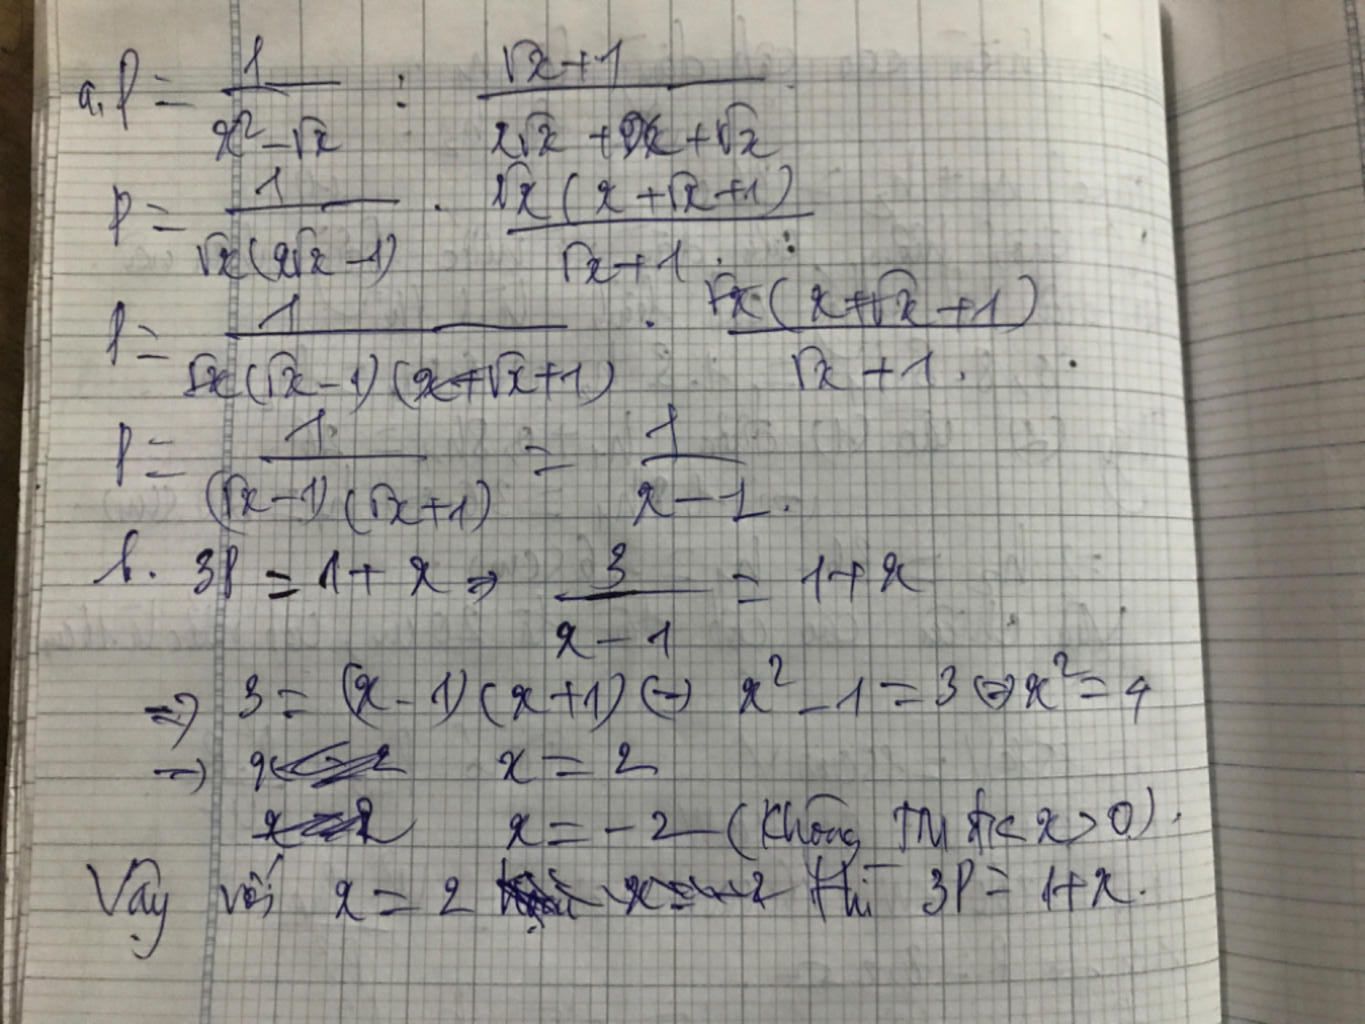 a, P = 1/(x² - √x) : (√x + 1)/(x√x + x + √x)
P = 1/(√x(x√x - 1)) . √x(x + √x + 1)/(√x + 1) :
P = 1/(√x(√x - 1)(x + √x + 1)) . √x(x + √x + 1)/(√x + 1) .
P = 1/((√x - 1)(√x + 1)) = 1/(x - 1) .
b. 3P = 1 + x => 3/(x - 1) = 1 + x
=> 3 = (x - 1)(x + 1) <=> x² - 1 = 3 <=> x² = 4
=> x = 2
x = -2 (Không TM đk x > 0).
Vậy với x = 2 thì 3P = 1 + x.